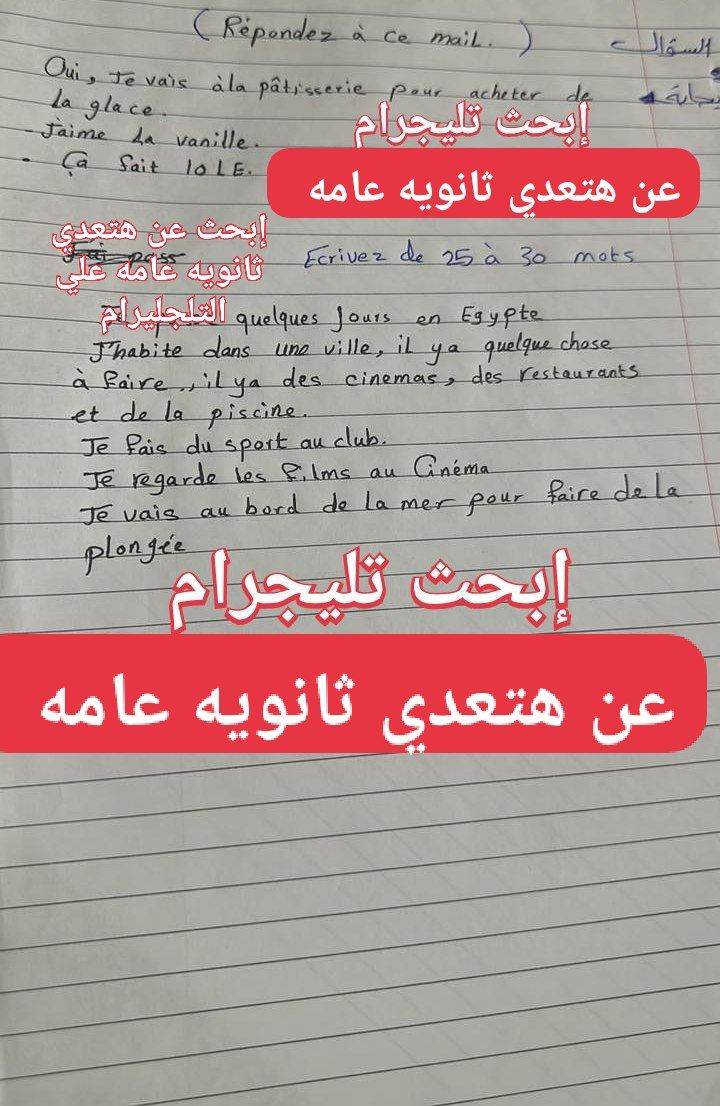 (Répondez à ce mail.) السؤال
Oui, Je vais à la pâtisserie pour acheter de
la glace.
إبحث تليجرام
- J'aime la vanille.
- Ça fait 10 LE.
عن هتعدي ثانويه عامه
إبحث عن هتعدي
ثانويه عامه علي
التلجليرام
Ecrivez de 25 à 30 mots
quelques Jours en Egypte
J'habite dans une ville, il ya quelque chose
à faire., il ya des cinemas, des restaurants
et de la piscine.
Je fais du sport au club.
Je regarde les films au Cinéma
Je vais au bord de la mer pour faire de la
plongée
إبحث تليجرام
عن هتعدي ثانويه عامه